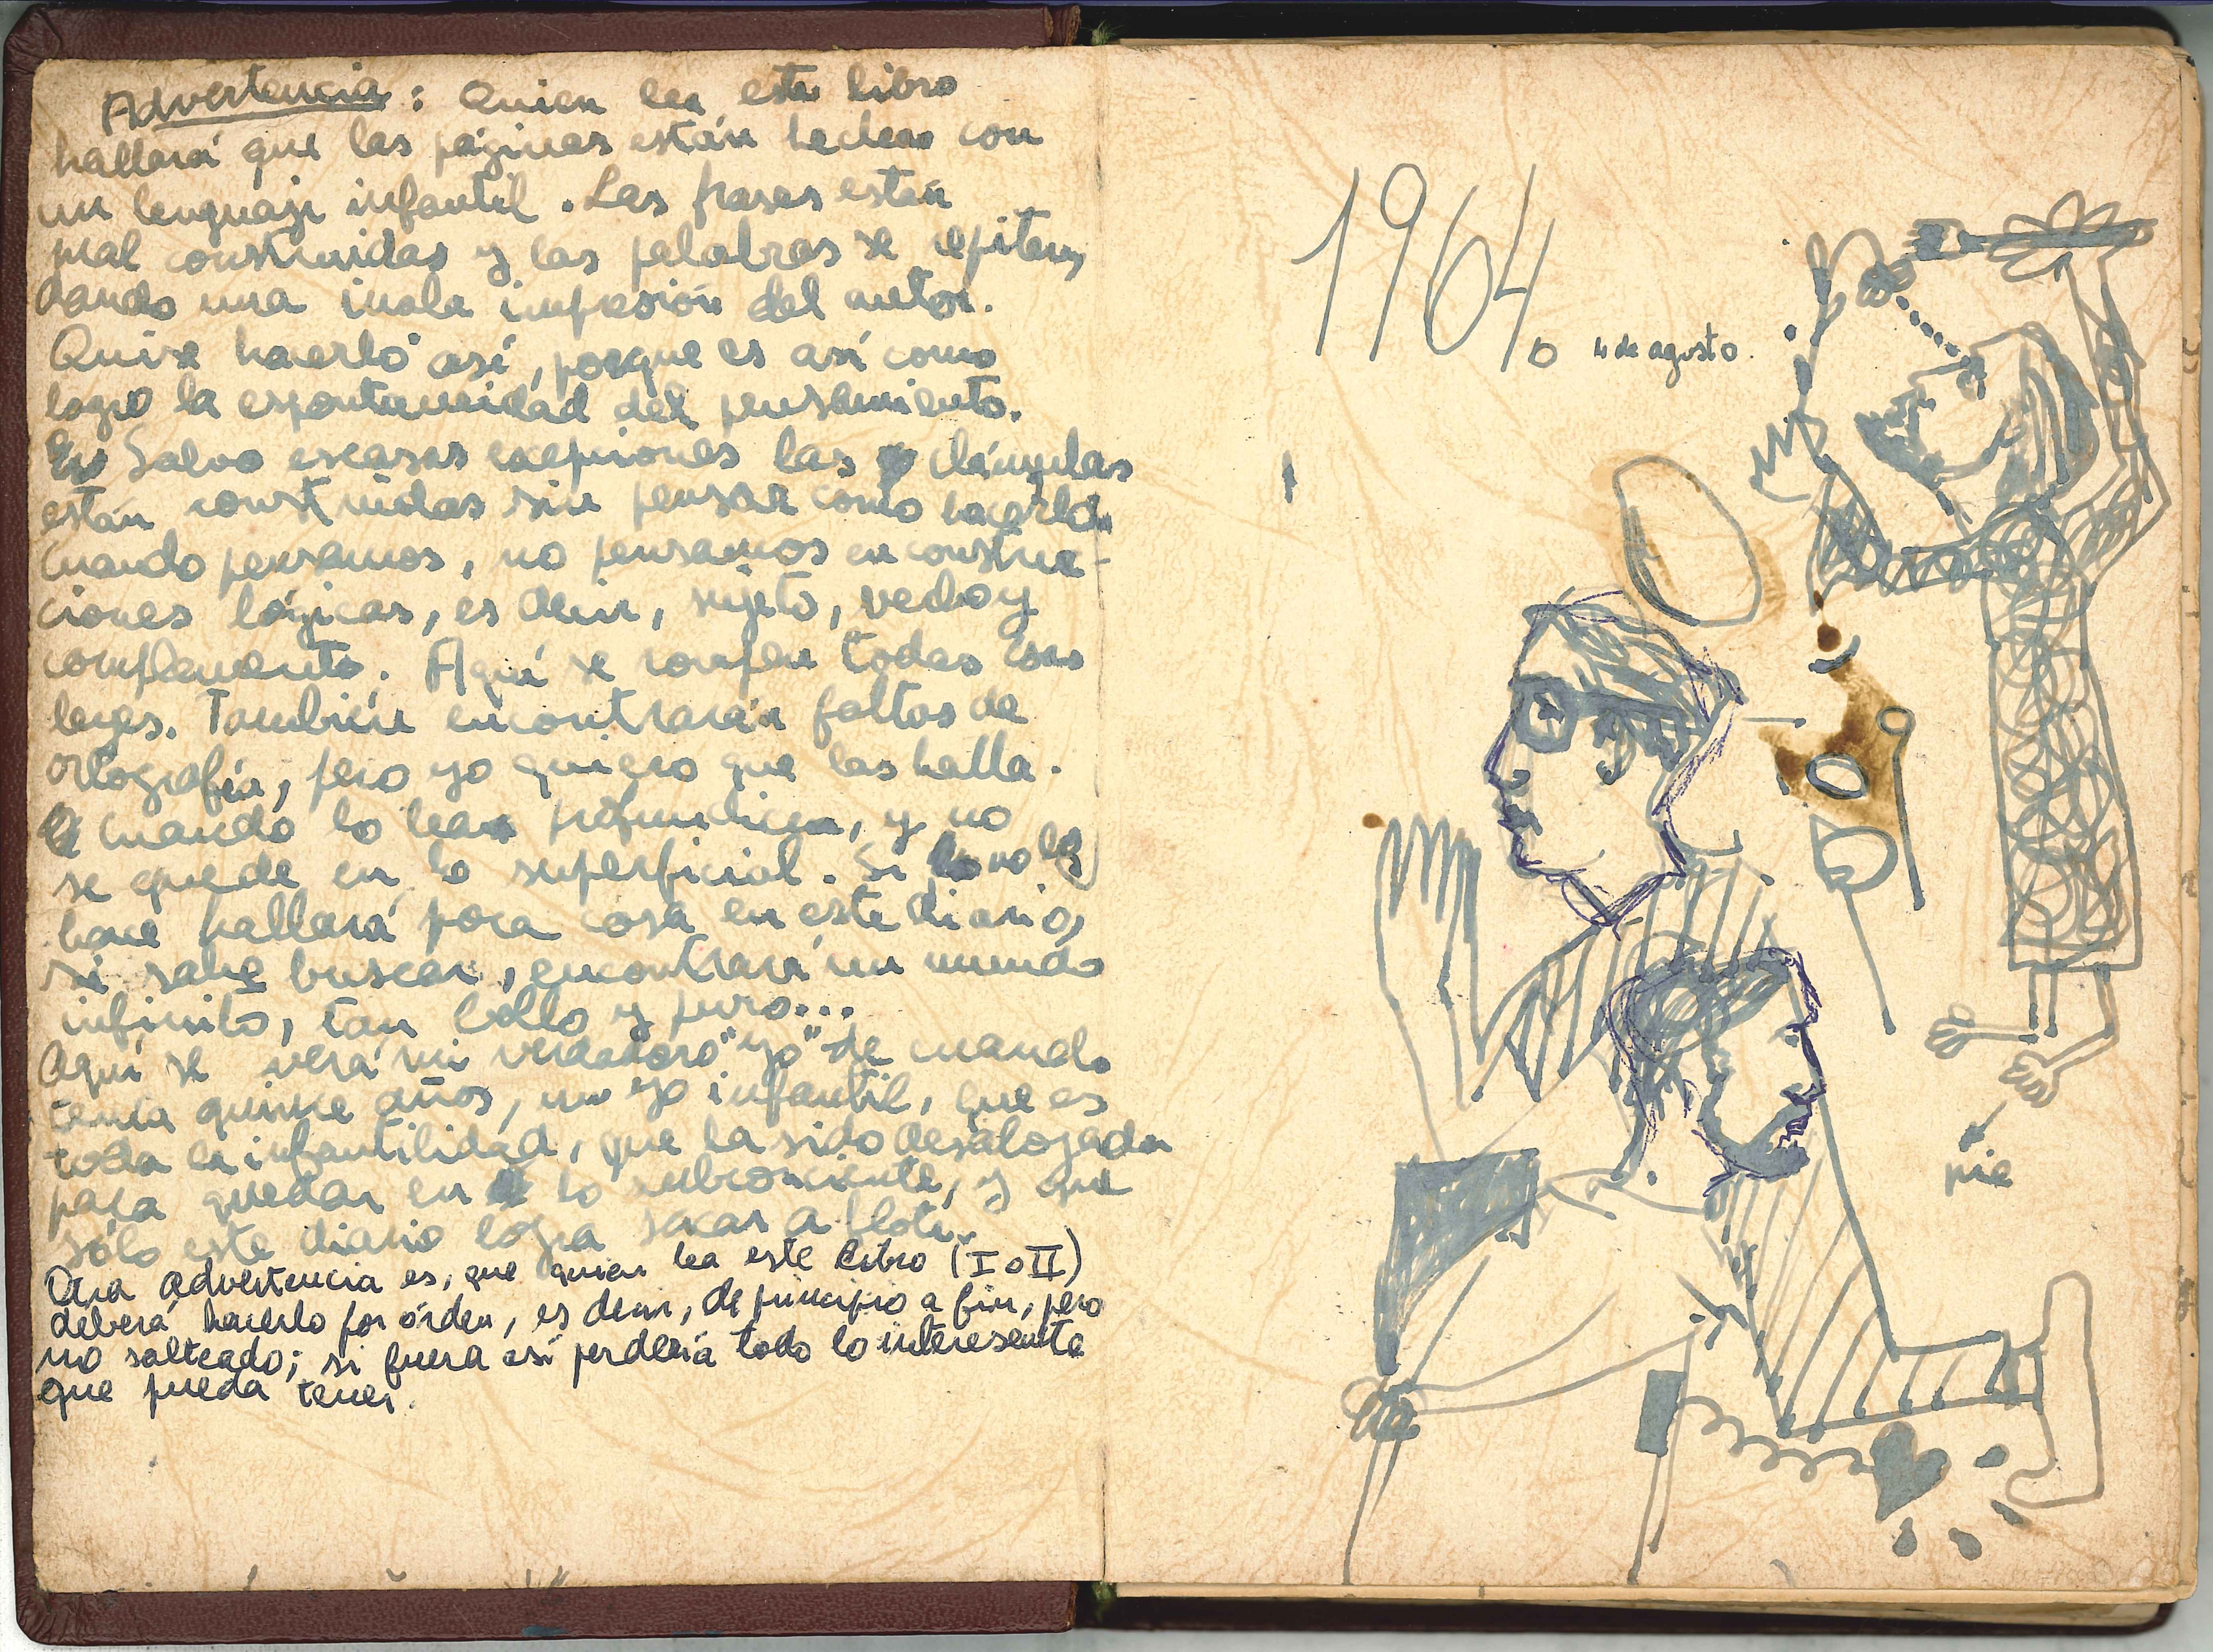 Advertencia: Quien lea este libro
hallará que las páginas están hechas con
un lenguaje infantil. Las frases están
mal construidas y las palabras se repiten,
dando una mala impresión del autor.
Quise hacerlo así, porque es así como
logro la espontaneidad del pensamiento.
Salvo escasas excepciones las cláusulas
están construidas sin pensar como hacerlo
Cuando pensamos, no pensamos en construc-
ciones lógicas, es decir, sujeto, verbo y
complemento. Aquí se rompen todas esas
leyes. También encontrarán faltas de
ortografía, pero yo quiero que las halla.
Cuando lo lea profundice, y no
se quede en lo superficial. Si no lo
hace hallará poca cosa en este diario,
si sabe buscar, encontrará un mundo
infinito, tan bello y puro...
Aquí se verá mi verdadero "yo" de cuando
tenía quince años, un yo infantil, que es
toda la infantilidad, que ha sido desalojada
para quedar en lo subconciente, y que
sólo este diario logra sacar a flote.
Otra advertencia es, que quien lea este libro (I o II)
deberá hacerlo por órden, es decir, de principio a fin, pero
no salteado; si fuera así perdería todo lo interesente
que pueda tener.
1964.
4 de agosto.
pie